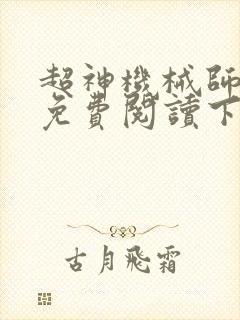 超神機械師
免費閱讀下
古月飛霜